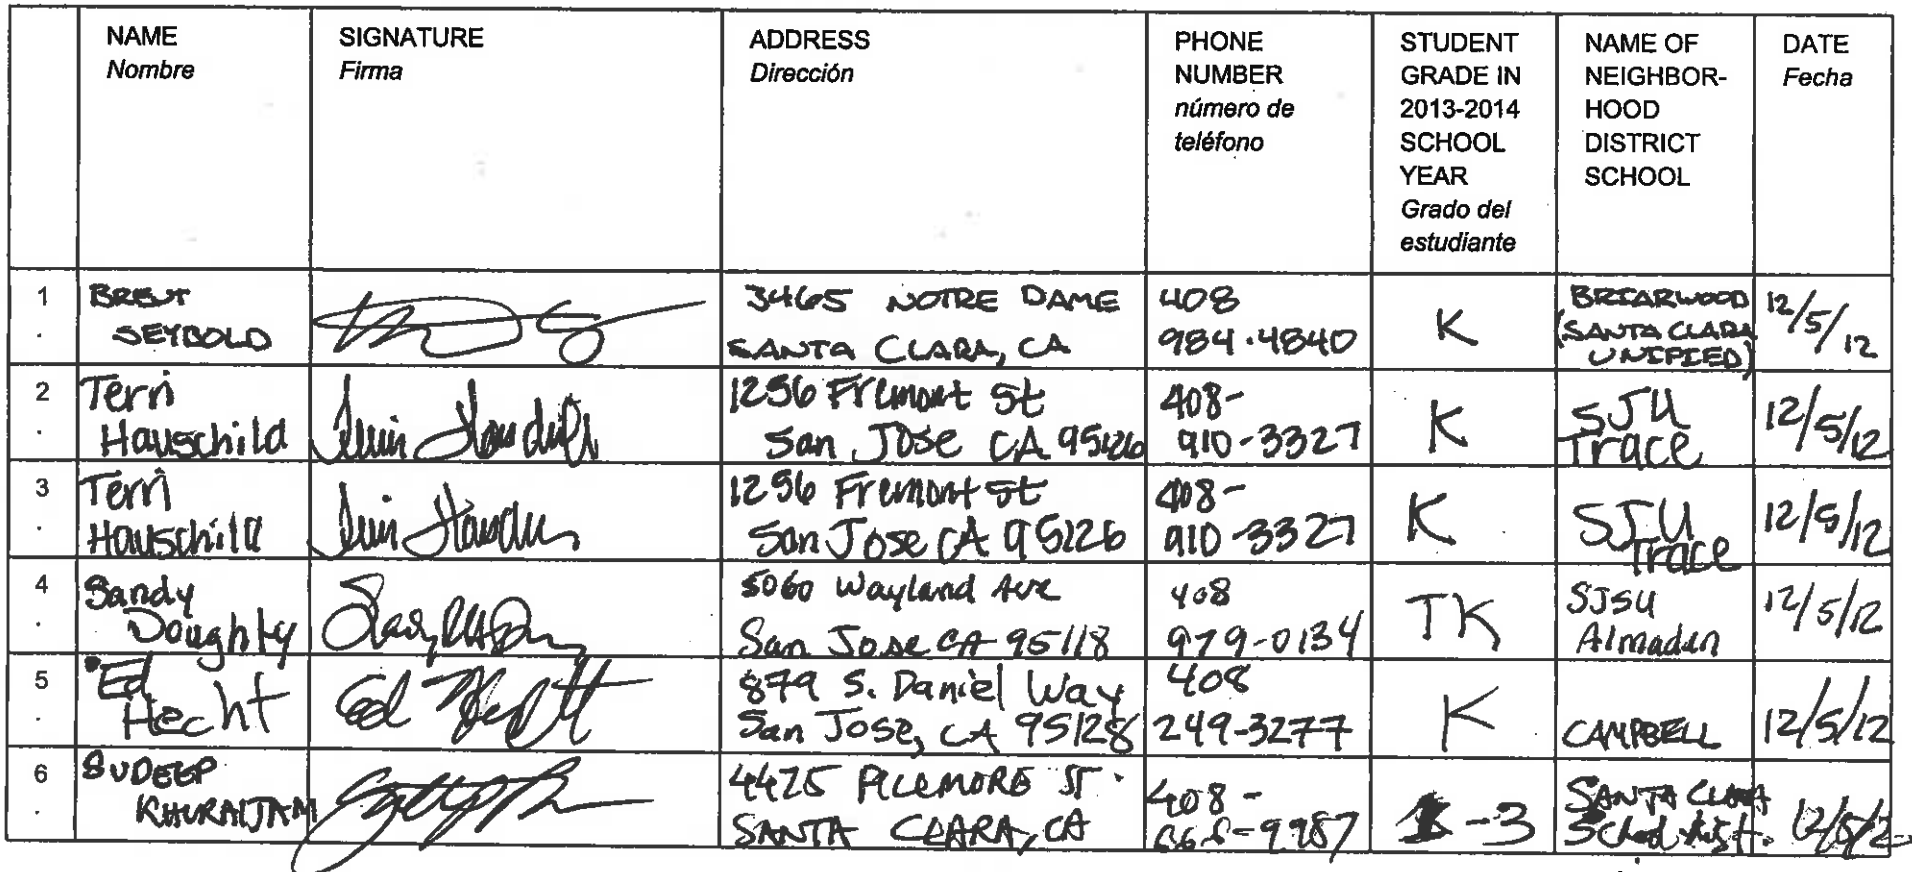 NAME
Nombre
SIGNATURE
Firma
ADDRESS
Dirección
PHONE
NUMBER
número de
teléfono
STUDENT
GRADE IN
2013-2014
SCHOOL
YEAR
Grado del
estudiante
NAME OF
NEIGHBOR-
HOOD
DISTRICT
SCHOOL
DATE
Fecha
1.
BRENT
SEYBOLD
3465 NOTRE DAME
SANTA CLARA, CA
408
984.4840
K
BRIARWOOD
(SANTA CLARA
UNIFIED)
12/5/12
2.
Terri
Hauschild
1256 Fremont St
San Jose CA 95126
408-
910-3327
K
SJU
Trace
12/5/12
3.
Terri
Hauschild
1256 Fremont St
San Jose CA 95126
408-
910-3327
K
SJU
Trace
12/5/12
4.
Sandy
Doughty
5060 Wayland Ave
San Jose CA 95118
408
979-0134
TK
SJSU
Almaden
12/5/12
5.
Ed
Hecht
Ed Hecht
879 S. Daniel Way
San Jose, CA 95128
408
249-3277
K
CAMPBELL
12/5/12
6.
SUDEEP
KHURAIJAM
4425 ST
SANTA CLARA, CA
408-
-3
SANTA CLARA
School Dist.
12/5/12